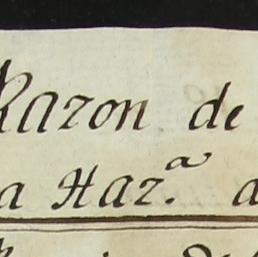 Razon de
a Haz.ª